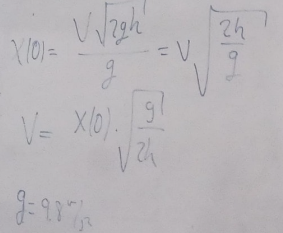 X(0) = V√2gh / g = V √2h/g
V = X(0) · √g/2h
g = 9,8 m/s²